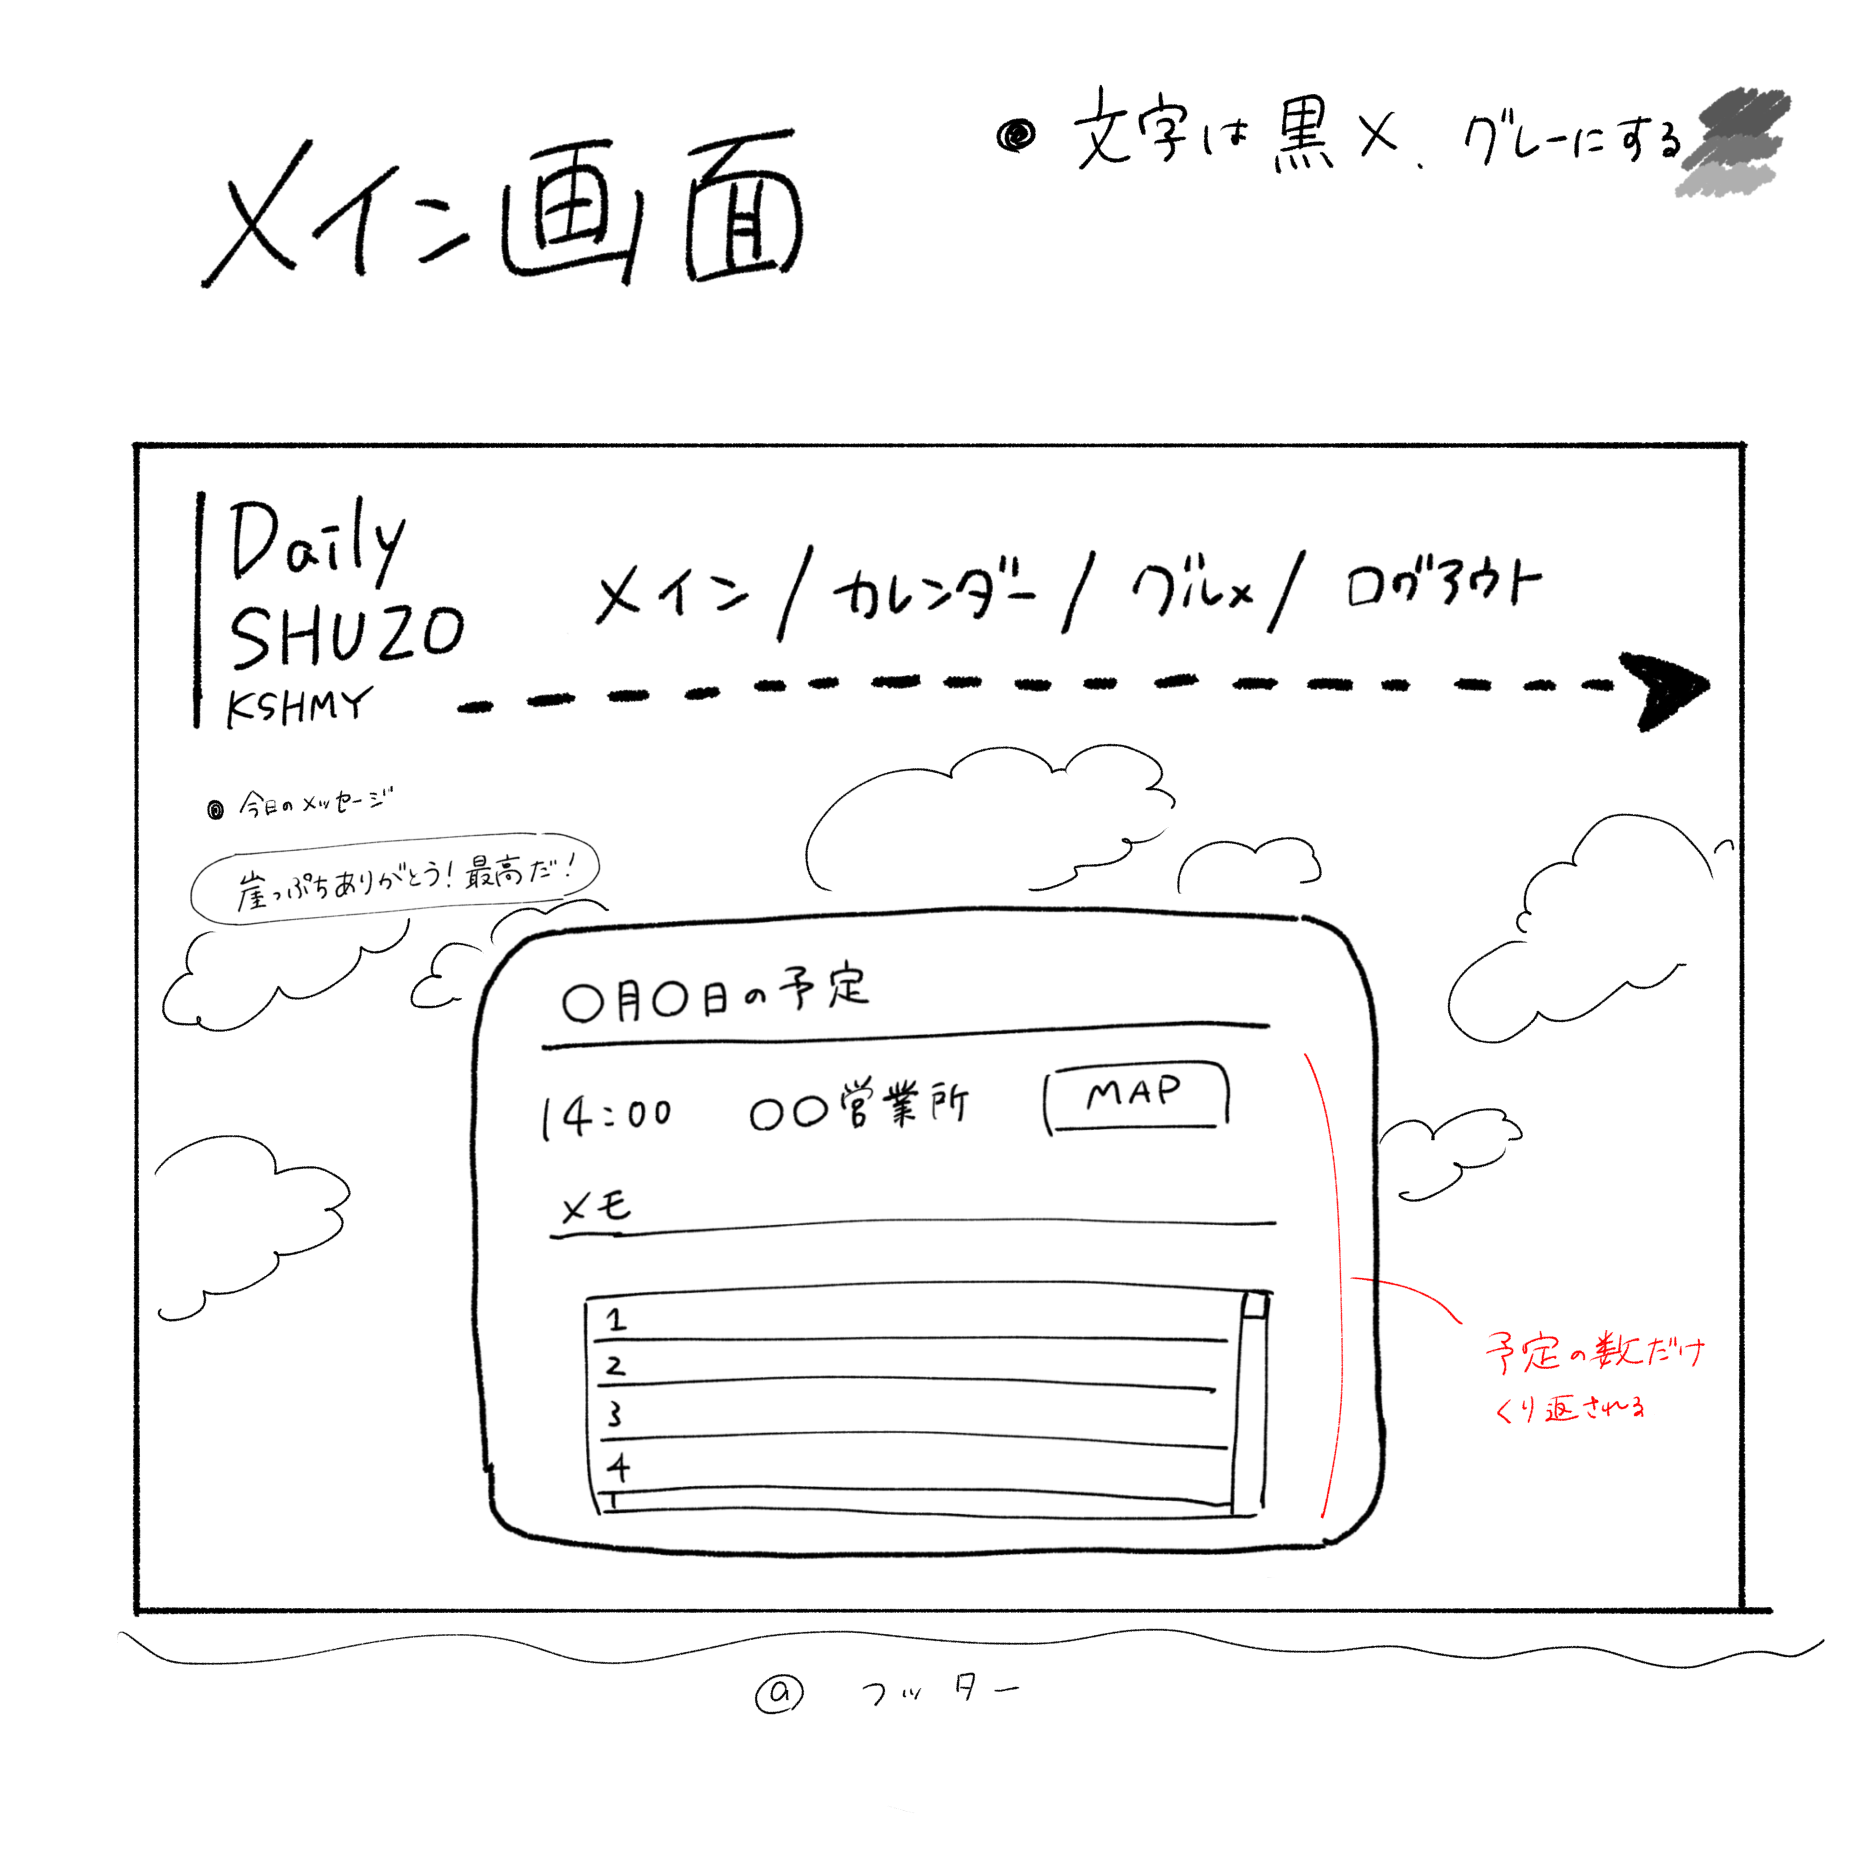 メイン画面
文字は黒×、グレーにする
Daily
SHUZO
KSHMY
メイン/カレンダー/グルメ/ログアウト
今日のメッセージ
崖っぷちありがとう!最高だ!
○月○日の予定
14:00 ○○営業所 MAP
メモ
1
2
3
4
予定の数だけ
くり返される
@ フッター